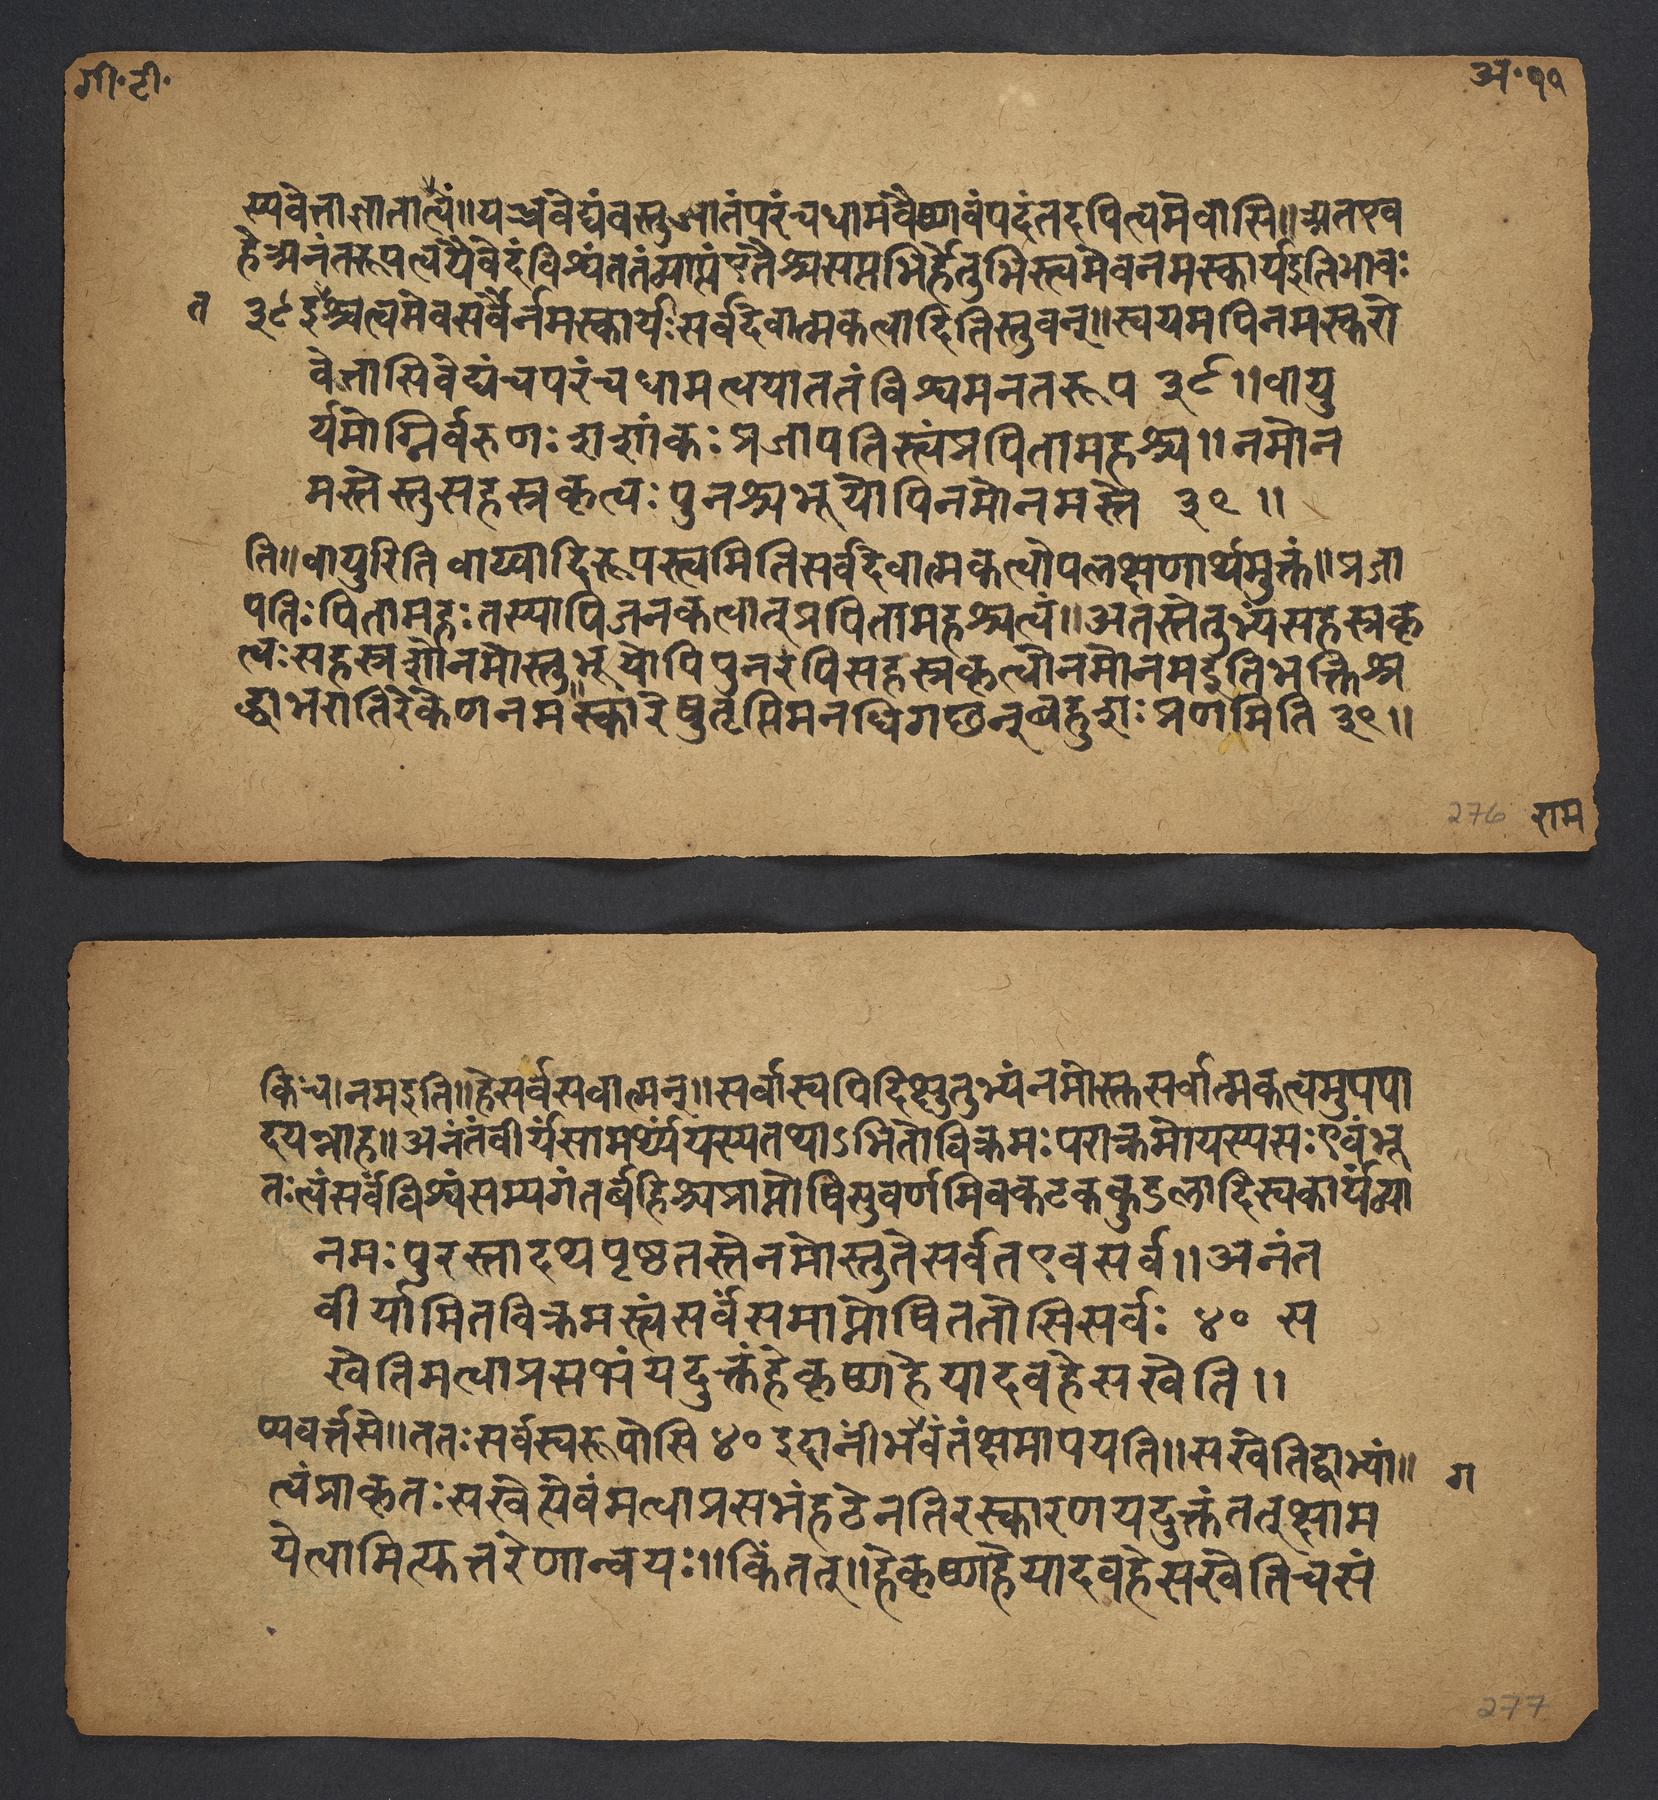 गी॰टी॰
अ॰११
स्यवेत्ताज्ञातात्वं॥यच्चवेद्यंवस्तुजातंपरंचधामवैष्णवंपदंतदपित्वमेवासि॥अतएव
हेअनंतरूपत्वयैवेदंविश्वंततंव्याप्तंएतैश्चसप्तभिर्हेतुभिस्त्वमेवनमस्कार्यइतिभावः
त
३८इश्चत्वमेवसर्वैर्नमस्कार्यःसर्वदेवात्मकत्वादितिस्तुवन्॥स्वयमपिनमस्करो
वेत्तासिवेद्यंचपरंचधामत्वयाततंविश्वमनतरूप ३८॥वायु
र्यमोग्निर्वरुणःशशांकःप्रजापतिस्त्वंप्रपितामहश्च॥नमोन
मस्तेस्तुसहस्रकृत्वःपुनश्चभूयोपिनमोनमस्ते ३९॥
ति॥वायुरिति वाय्वादिरूपस्त्वमितिसर्वदेवात्मकत्वोपलक्षणार्थमुक्तं॥प्रजा
पतिःपितामहःतस्यापिजनकत्वात्प्रपितामहश्चत्वं॥अतस्तेतुभ्यंसहस्रकृ
त्वःसहस्रशोनमोस्तुभूयोपिपुनरपिसहस्रकृत्वोनमोनमइतिभक्तिश्र
द्धाभरातिरेकेणनमस्कारेषुतृप्तिमनधिगछन्बहुशःप्रणमिति ३९॥
276
राम
किंच।नमइति॥हेसर्वसवात्मन्॥सर्वास्वपिदिक्षुतुभ्यंनमोस्तसर्वात्मकत्वमुपपा
दयन्नाह॥अनंतंवीर्यंसामर्थ्यंयस्यतथाऽमितोविक्रमःपराक्रमोयस्यसःएवंभू
तःत्वंसर्वंविश्वंसम्यगंतर्बहिश्चप्राप्नोषिसुवर्णमिवकटककुडलादिस्वकार्यंव्या
नमःपुरस्तादथपृष्ठतस्तेनमोस्तुतेसर्वतएवसर्व॥अनंत
वीर्यामितविक्रमस्त्वंसर्वंसमाप्नोषिततोसिसर्वः ४० स
खेतिमत्वाप्रसभंयदुक्तंहेकृष्णहेयादवहेसखेति॥
प्यवर्त्तसे॥ततःसर्वस्वरूपोसि ४० इदानींभवंतंक्षमापयति॥सखेतिद्वाभ्यां॥
ग
त्वंप्राकृतःसखैत्येवंमत्वाप्रसभंहठेनतिरस्कारणयदुक्तंततूक्षाम
येत्वामित्यत्तरेणान्वयः॥किंतत्॥हेकृष्णहेयादवहेसखेतिचसं
277